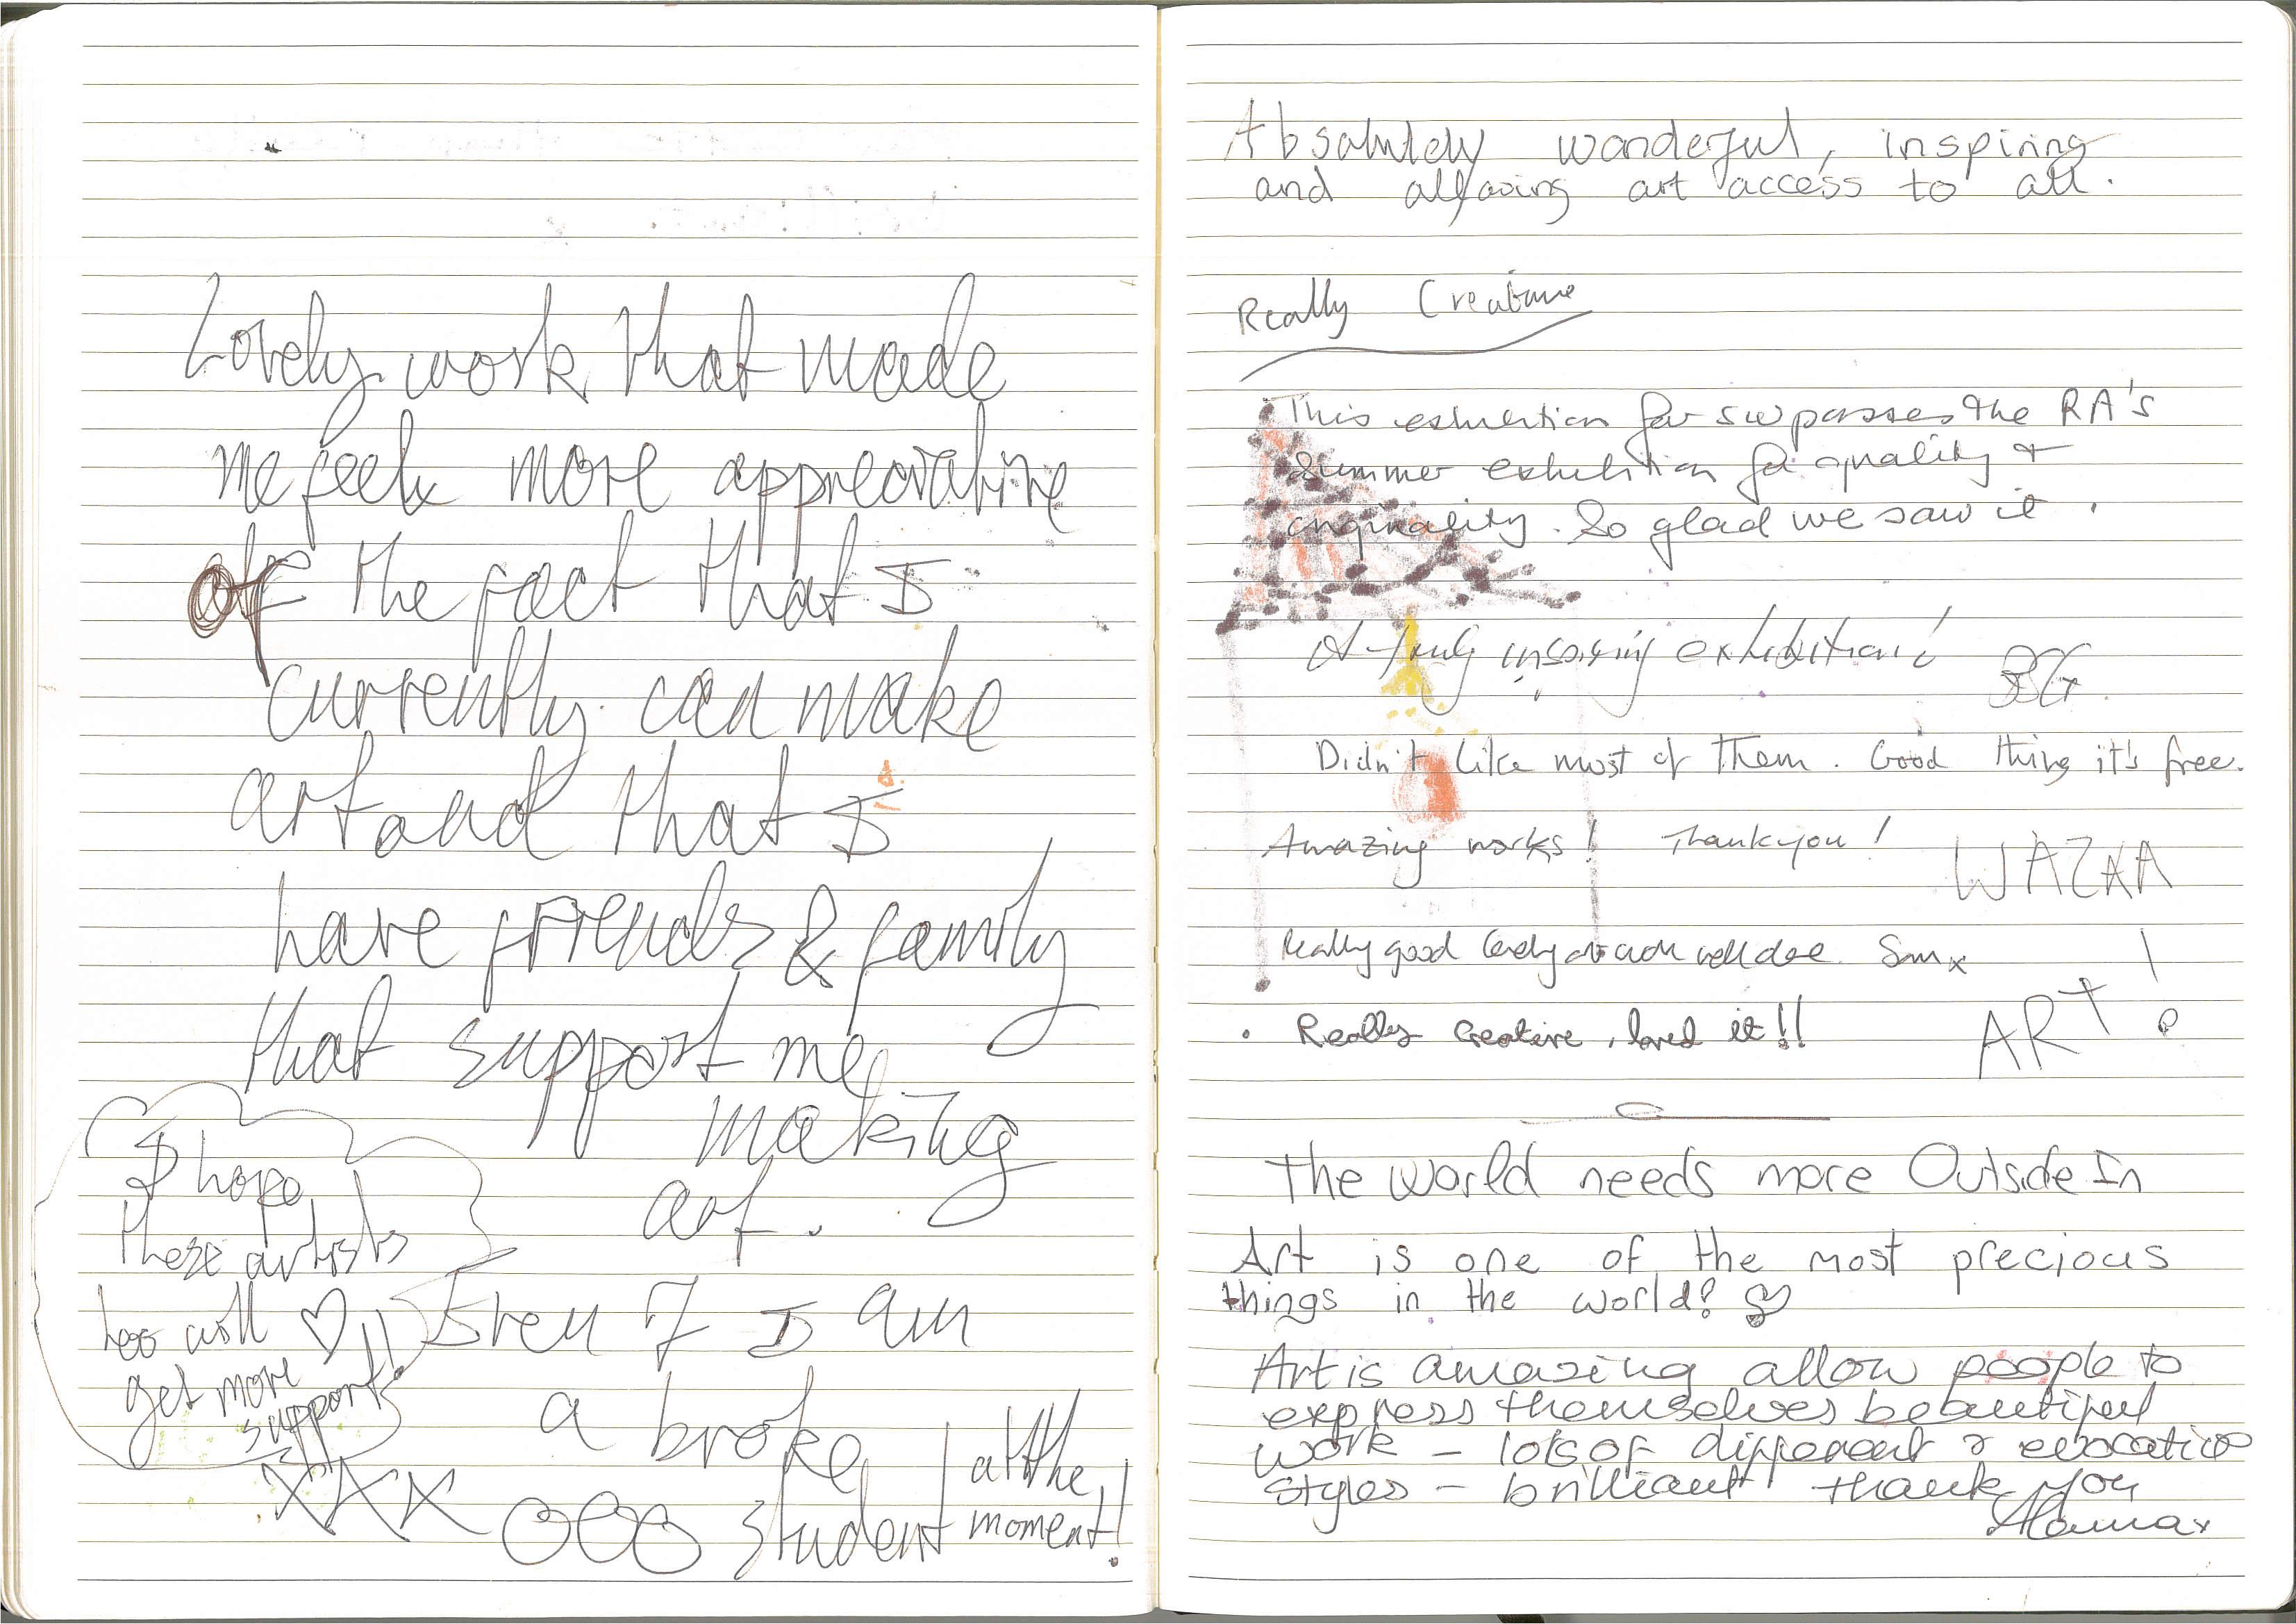 Lovely work that made
me feel more appreciative
of the fact that I
currently can make
art and that I
have friends & family
that support me
making
art.
Even if I am
a broke
student at the
moment!
I hope
these artists
too will
get more
support!!
XXX OOO
Absolutely wonderful, inspiring
and allowing art access to all.
Really Creative
This exhibition far surpasses the RA's
Summer exhibition for quality &
originality. So glad we saw it.
A truly inspiring exhibition! BG.
Didn't like most of them. Good thing it's free.
Amazing works! Thank you! WAZAA
Really good lovely well done. Sam x
· Really creative, loved it!! ART!
The World needs more Outside In
Art is one of the most precious
things in the world!
Art is amazing allow people to
express themselves beautiful
work - lots of different & evocative
styles - brilliant thank you